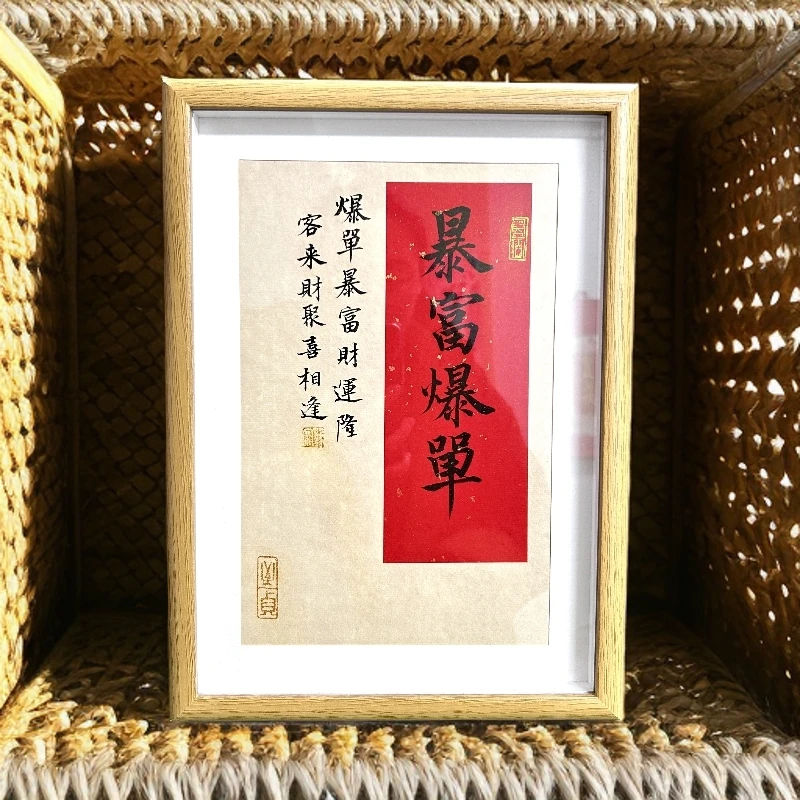 暴富爆單
爆單暴富財運隆
客来財聚喜相逢